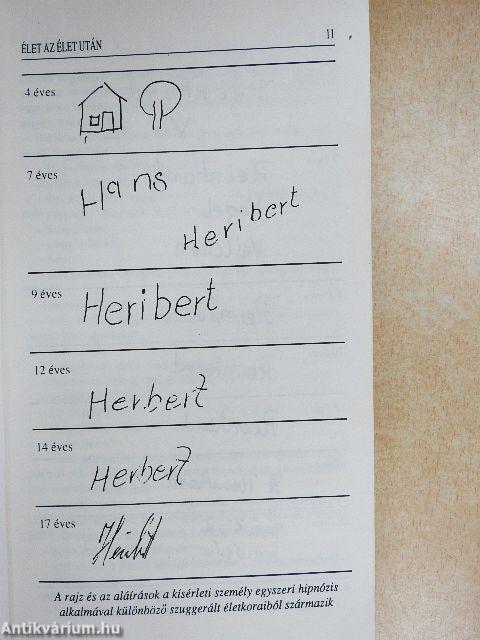 ÉLET AZ ÉLET UTÁN 11
4 éves
7 éves Hans
Heribert
9 éves Heribert
12 éves Herbert
14 éves Herbert
17 éves
A rajz és az aláírások a kísérleti személy egyszeri hipnózis
alkalmával különböző szuggerált életkoraiból származik
Antikvárium.hu